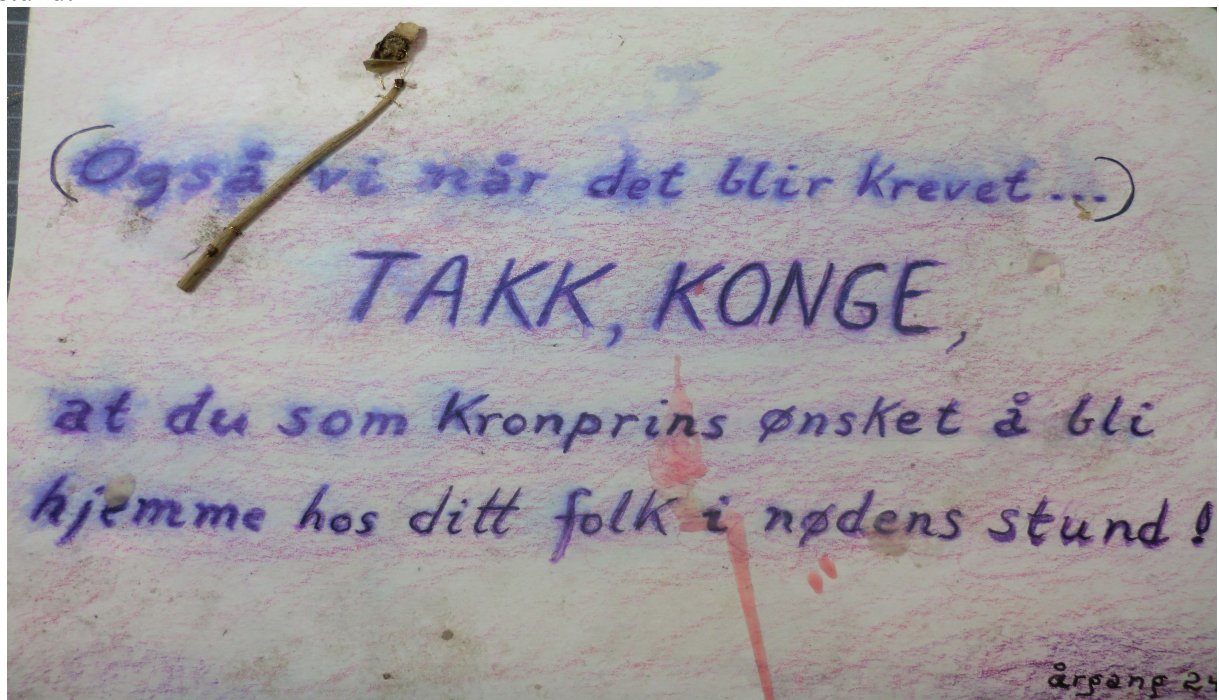 (Også vi når det blir krevet...)
TAKK, KONGE,
at du som Kronprins ønsket å bli
hjemme hos ditt folk i nødens stund!
årgang 24